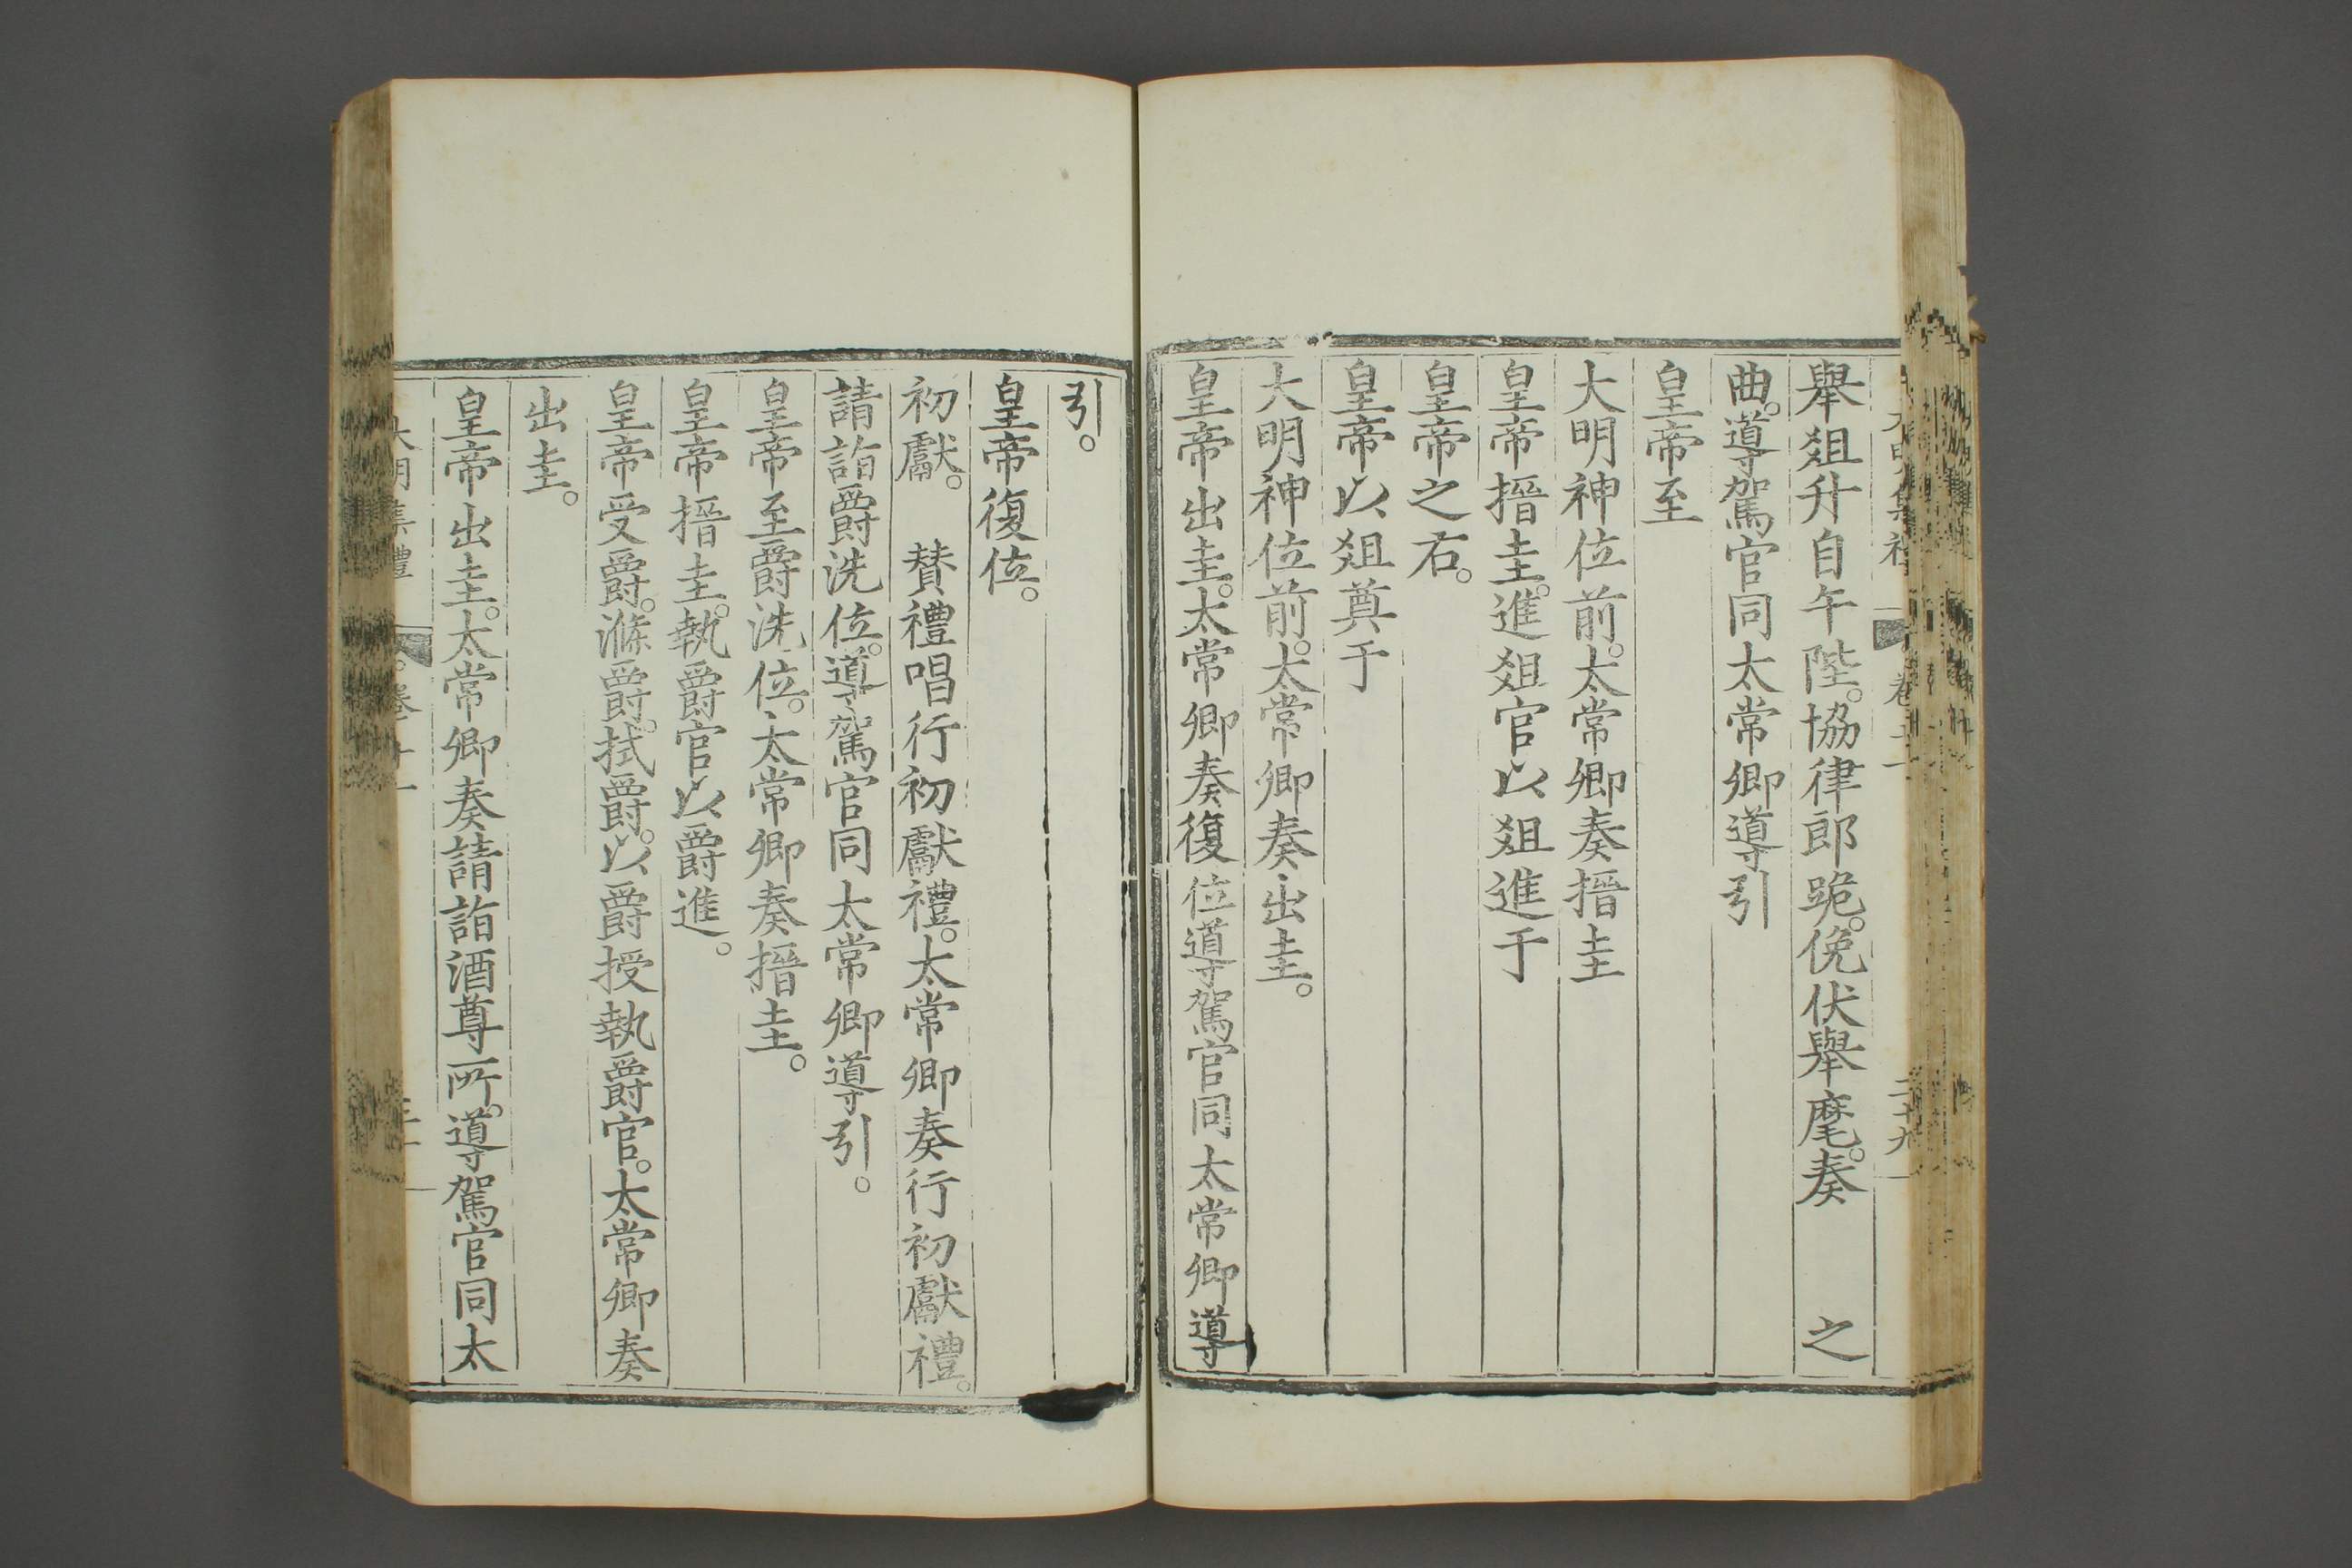 舉爼升自午陛。協律郎跪。俛伏舉麾。奏　之
曲。導駕官同太常卿導引
皇帝至
大明神位前。太常卿奏搢圭
皇帝搢圭。進爼官以爼進于
皇帝之右。
皇帝以爼奠于
大明神位前。太常卿奏出圭。
皇帝出圭。太常卿奏復位導駕官同太常卿導
引。
皇帝復位。
初獻。　賛禮唱行初獻禮。太常卿奏行初獻禮。
請詣爵洗位。導駕官同太常卿導引。
皇帝至爵洗位。太常卿奏搢圭。
皇帝搢圭。執爵官以爵進。
皇帝受爵。滌爵。拭爵。以爵授執爵官。太常卿奏
出圭。
皇帝出圭。太常卿奏請詣酒尊所。導駕官同太